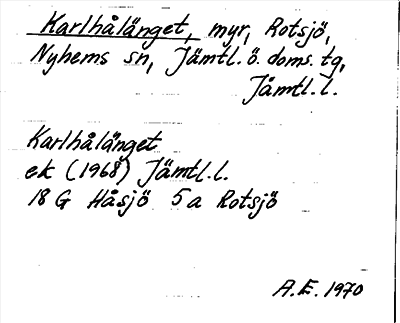 Karlhålänget, myr, Rotsjö,
Nyhems sn, Jämtl. ö. doms. tg,
Jämtl. l.
Karlhålänget
ek (1968) Jämtl. l.
18 G Håsjö 5 a Rotsjö
A.E. 1970